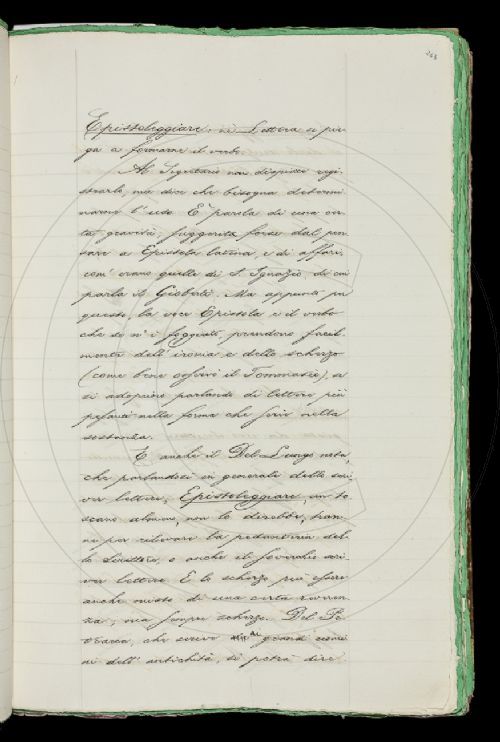 Epistoleggiare. nè Lettera si pie-
ga a formarne il verbo
Al Segretario non dispiace regi-
strarlo, ma dice che bisogna determi-
narne l'uso. È parola di una cer-
ta gravità, suggerita forse dal pen-
sare a Epistola latina, e di affari,
com'erano quelle di S. Ignazio, di cui
parla il Gioberti. Ma appunto per
questo, la voce Epistola e il verbo
che se n'è foggiato, prendono facil-
mente dell'ironia e dello scherzo
(come bene osservò il Tommasèo), se
si adoprino parlando di lettere più
pesanti nella forma che serie nella
sostanza.
E anche il Del Lungo nota,
che parlandosi in generale dello scri-
ver lettere, Epistoleggiare, un to-
scano almeno, non lo direbbe, tran-
ne per rilevare la pedanteria del-
lo Scrittore, o anche il soverchio scri-
ver lettere. E lo scherzo può essere
anche misto di una certa riveren-
za; ma sempre scherzo. Del Pe-
trarca, che scrive ai grandi uomi-
ni dell'antichità, si potrà dire